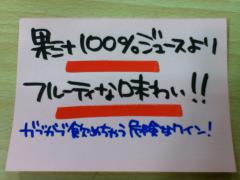 果汁100%ジュースより
フルーティな味わい!!
ガブガブ飲めちゃう危険なワイン!